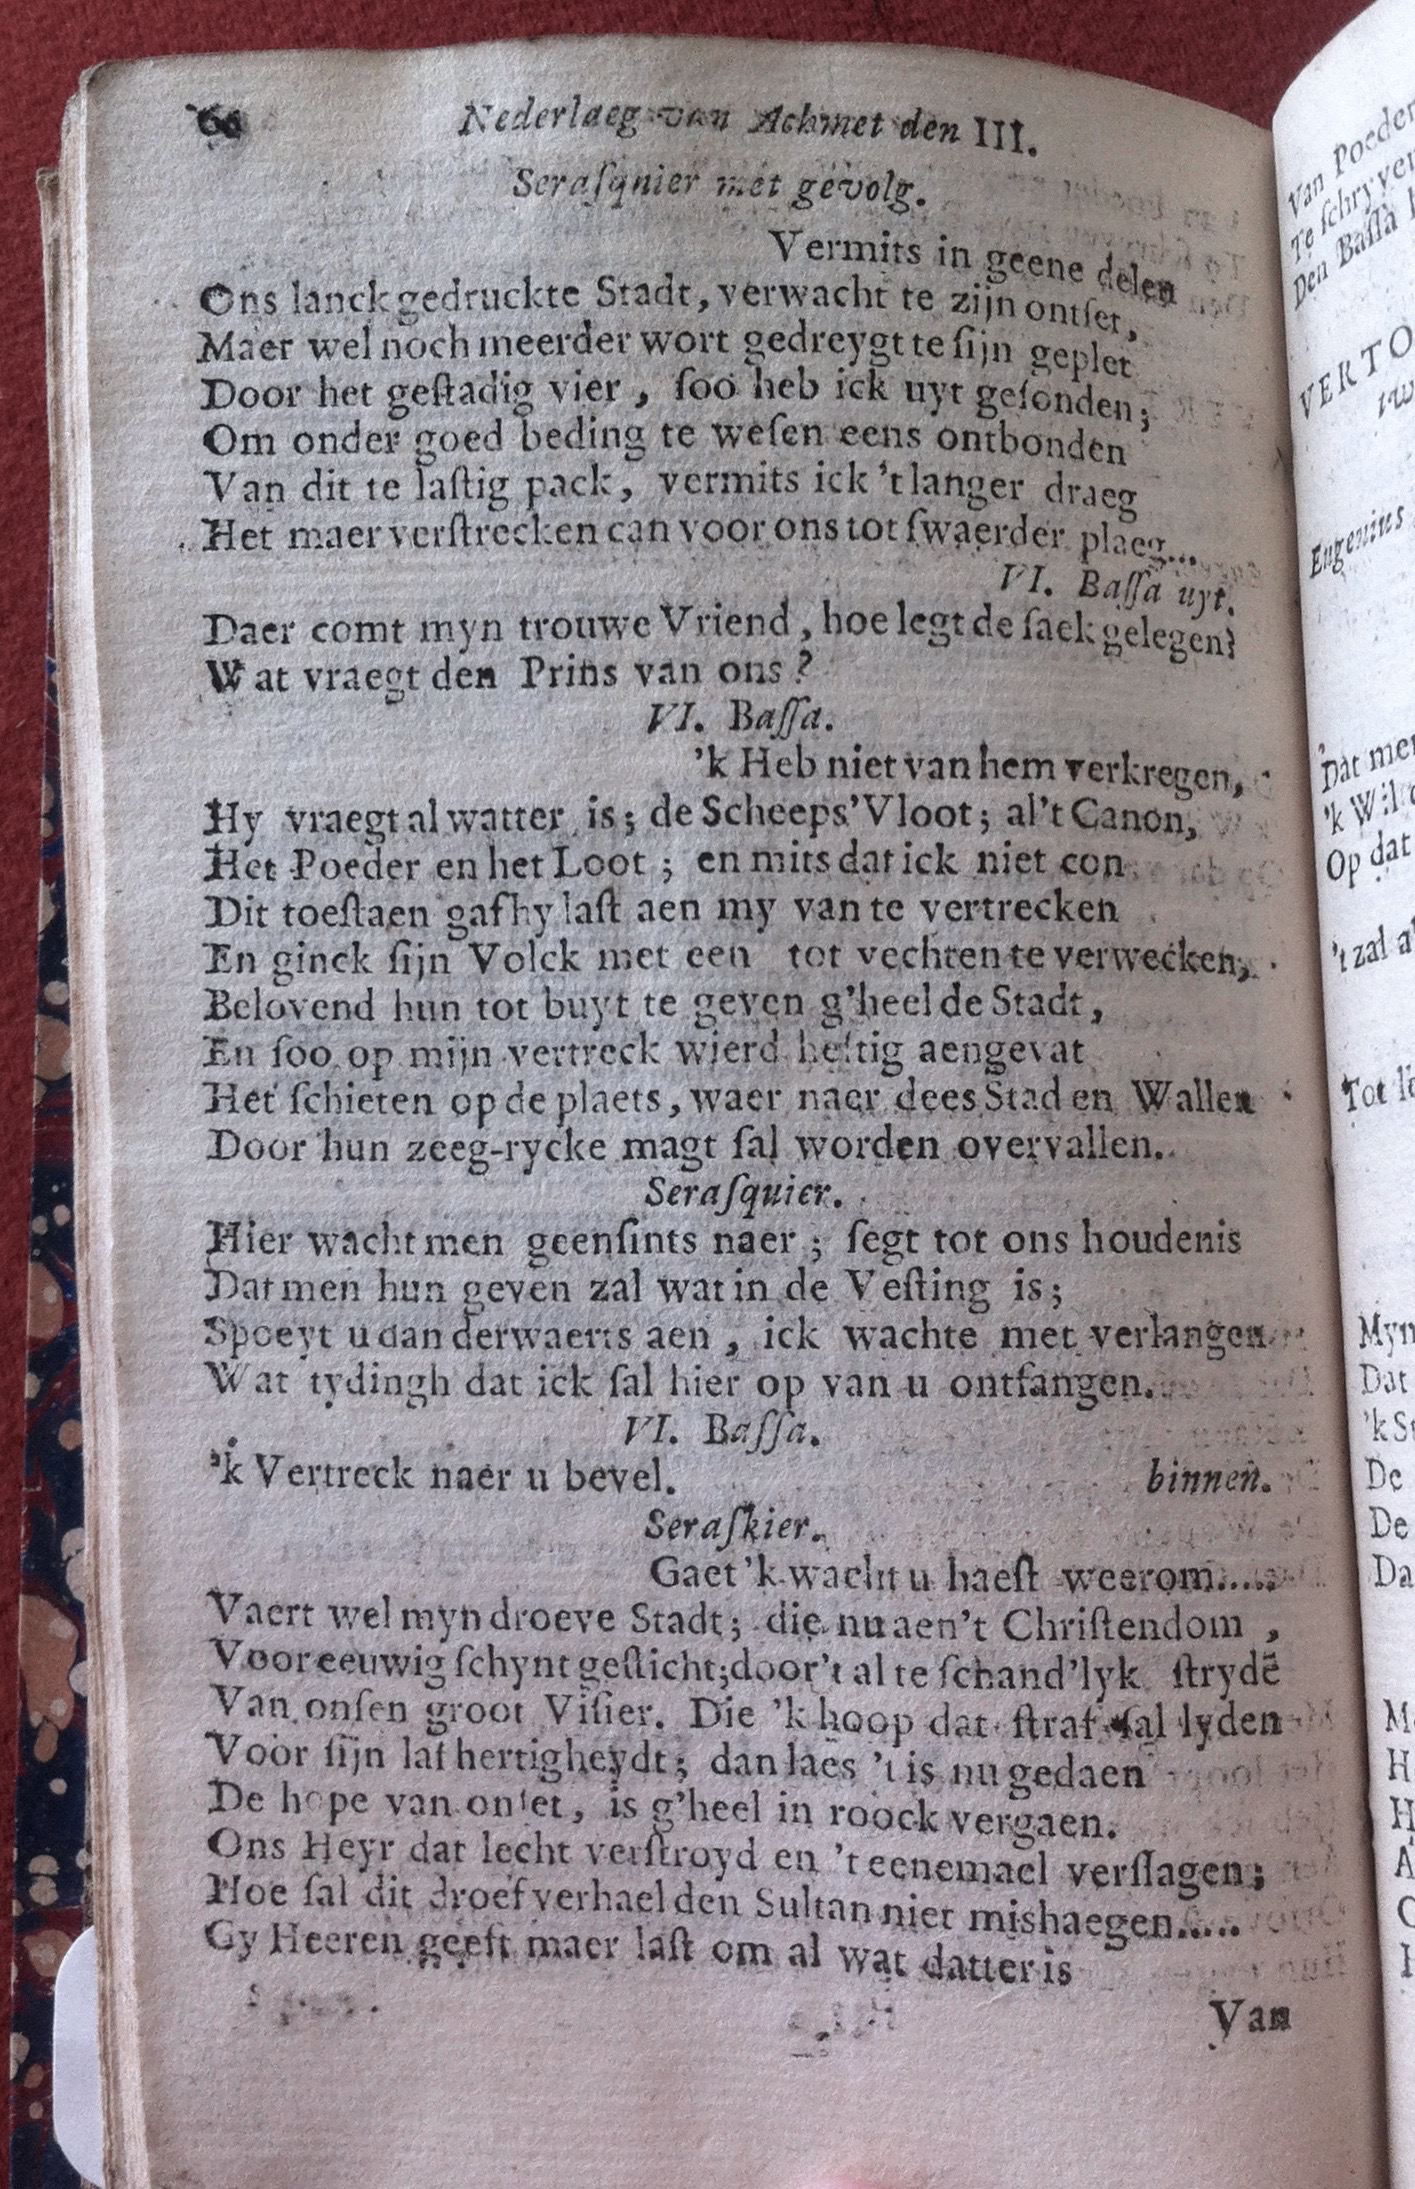 60 Nederlaeg van Achmet den III.
Seraſquier met gevolg.
Vermits in geene delen
Ons lanck gedruckte Stadt, verwacht te zijn ontſet,
Maer wel noch meerder wort gedreygt te ſijn geplet
Door het geſtadig vier, ſoo heb ick uyt geſonden;
Om onder goed beding te weſen eens ontbonden
Van dit te laſtig pack, vermits ick 't langer draeg
Het maer verſtrecken can voor ons tot ſwaerder plaeg...
VI. Baſſa uyt.
Daer comt myn trouwe Vriend, hoe legt de ſaek gelegen?
Wat vraegt den Prins van ons?
VI. Baſſa.
'k Heb niet van hem verkregen,
Hy vraegt al watter is; de Scheeps'Vloot; al 't Canon,
Het Poeder en het Loot; en mits dat ick niet con
Dit toeſtaen gaf hy laſt aen my van te vertrecken
En ginck ſijn Volck met een tot vechten te verwecken,
Belovend hun tot buyt te geven g'heel de Stadt,
En ſoo op mijn vertreck wierd heftig aengevat
Het ſchieten op de plaets, waer naer dees Stad en Wallen
Door hun zeeg-rycke magt ſal worden overvallen.
Seraſquier.
Hier wacht men geenſints naer; ſegt tot ons houdenis
Dat men hun geven zal wat in de Veſting is;
Spoeyt u dan derwaerts aen, ick wachte met verlangen
Wat tydingh dat ick ſal hier op van u ontfangen.
VI. Baſſa.
'k Vertreck naer u bevel. binnen.
Seraſkier.
Gaet 'k wacht u haeſt weerom.....
Vaert wel myn droeve Stadt; die nu aen 't Chriſtendom,
Voor eeuwig ſchynt geſticht; door 't al te ſchand'lyk ſtrydē
Van onſen groot Viſier. Die 'k hoop dat ſtraf ſal lyden
Voor ſijn laf hertigheydt; dan laes 't is nu gedaen
De hope van onſet, is g'heel in roock vergaen.
Ons Heyr dat lecht verſtroyd en 't eenemael verſlagen;
Hoe ſal dit droef verhael den Sultan niet mishaegen.....
Gy Heeren geeft maer laſt om al wat datter is
Van
Van Poeder
Te ſchryven
Den Baſſa
VERTO
Eugenius
Dat men
'k Wil
Op dat
't zal
Tot
Myn
Dat
'k
De
De
Da